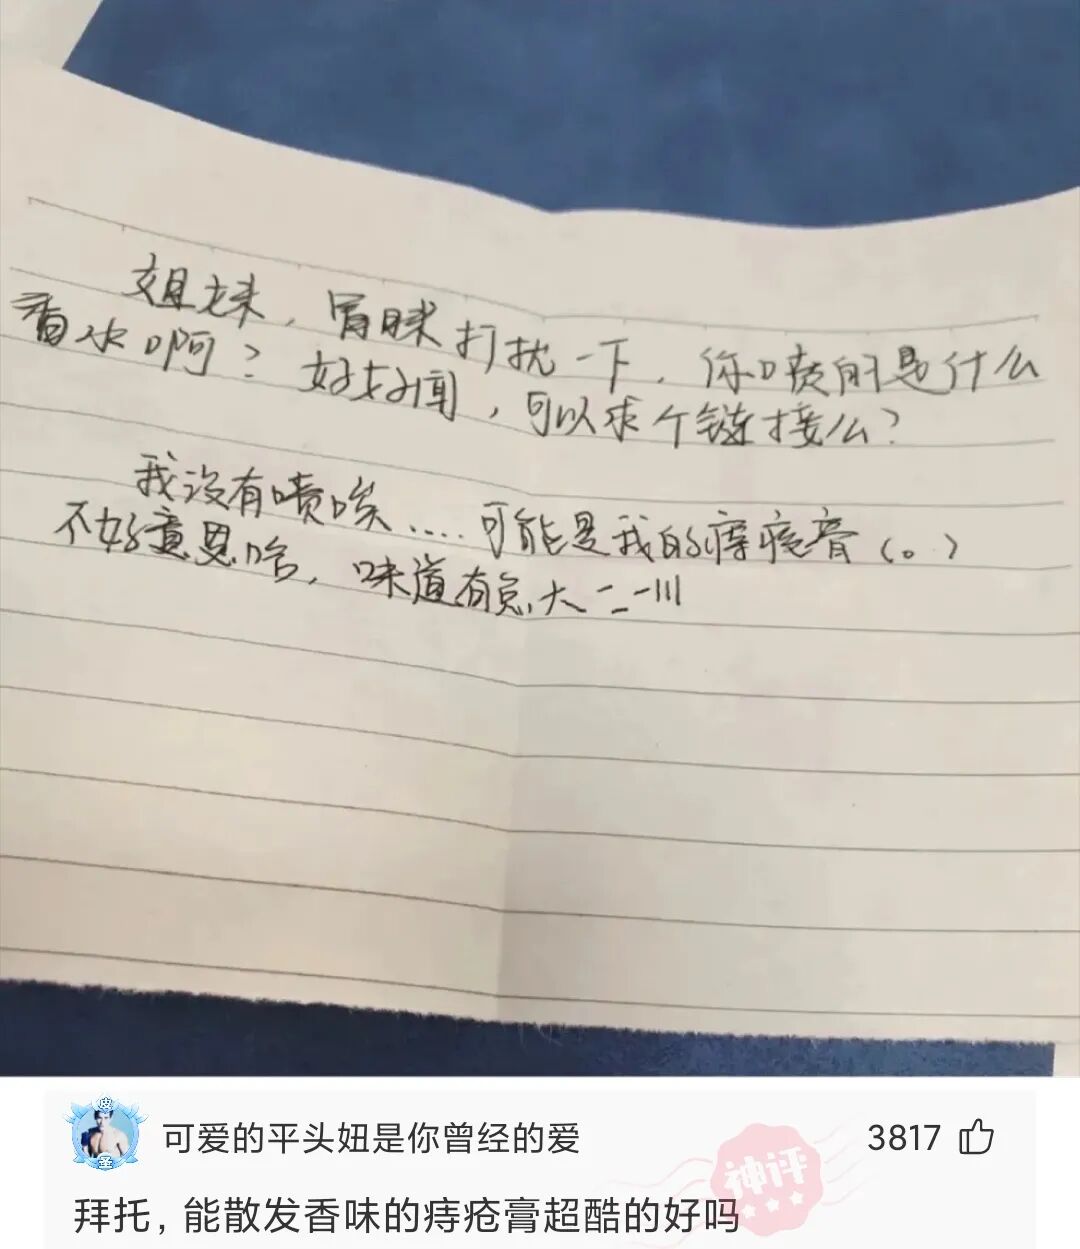 姐妹，冒昧打扰一下，你喷的是什么
香水啊？好好闻，可以求个链接么？
我没有喷唉....可能是我的痔疮膏（。）
不好意思哈，味道有点大
可爱的平头妞是你曾经的爱
3817
神评
拜托，能散发香味的痔疮膏超酷的好吗